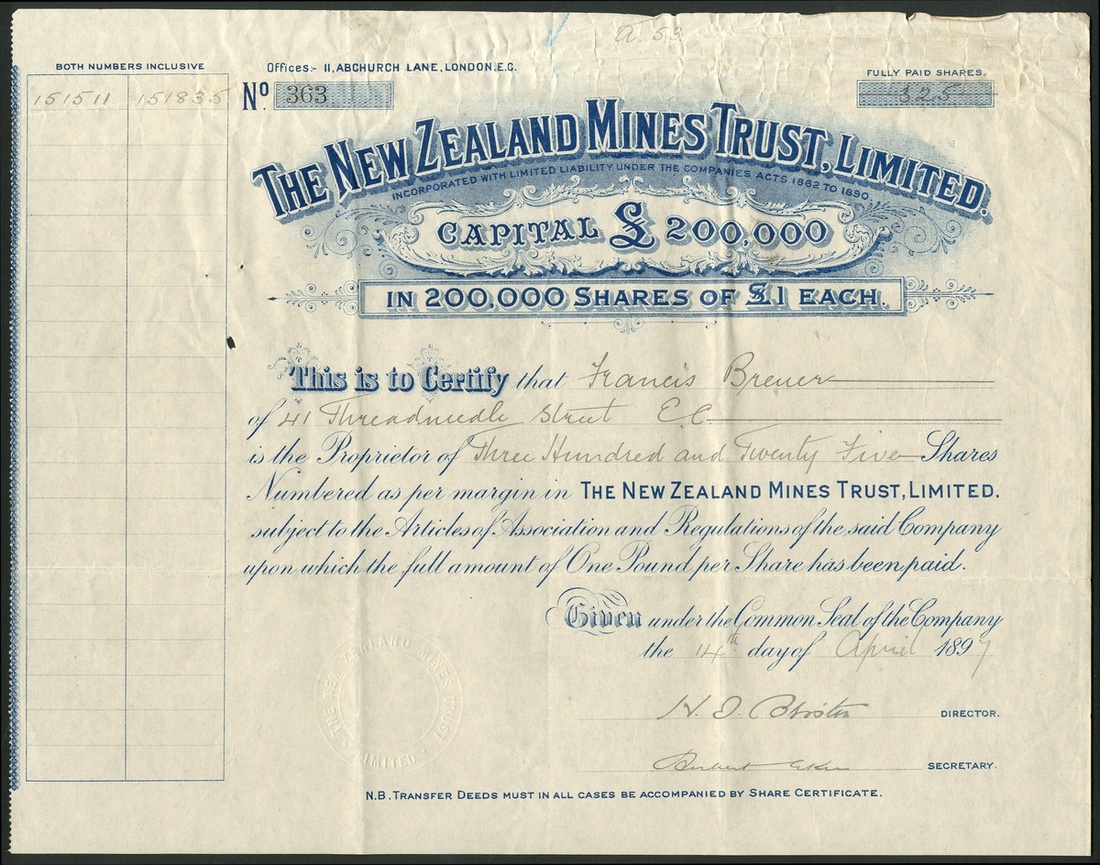 a. 53
BOTH NUMBERS INCLUSIVE
151511 151835
Offices:- 11, ABCHURCH LANE, LONDON, E.C.
No 363
FULLY PAID SHARES.
325
THE NEW ZEALAND MINES TRUST, LIMITED.
INCORPORATED WITH LIMITED LIABILITY UNDER THE COMPANIES ACTS 1862 TO 1890.
CAPITAL £ 200,000
IN 200,000 SHARES OF £1 EACH.
This is to Certify that Francis Breuer
of 41 Threadneedle Street E.C.
is the Proprietor of Three Hundred and Twenty Five Shares
Numbered as per margin in THE NEW ZEALAND MINES TRUST, LIMITED.
subject to the Articles of Association and Regulations of the said Company
upon which the full amount of One Pound per Share has been paid.
Given under the Common Seal of the Company
the 14th day of April 1897
H. J.
DIRECTOR.
Herbert
SECRETARY.
THE NEW ZEALAND MINES TRUST LIMITED
N.B. TRANSFER DEEDS MUST IN ALL CASES BE ACCOMPANIED BY SHARE CERTIFICATE.